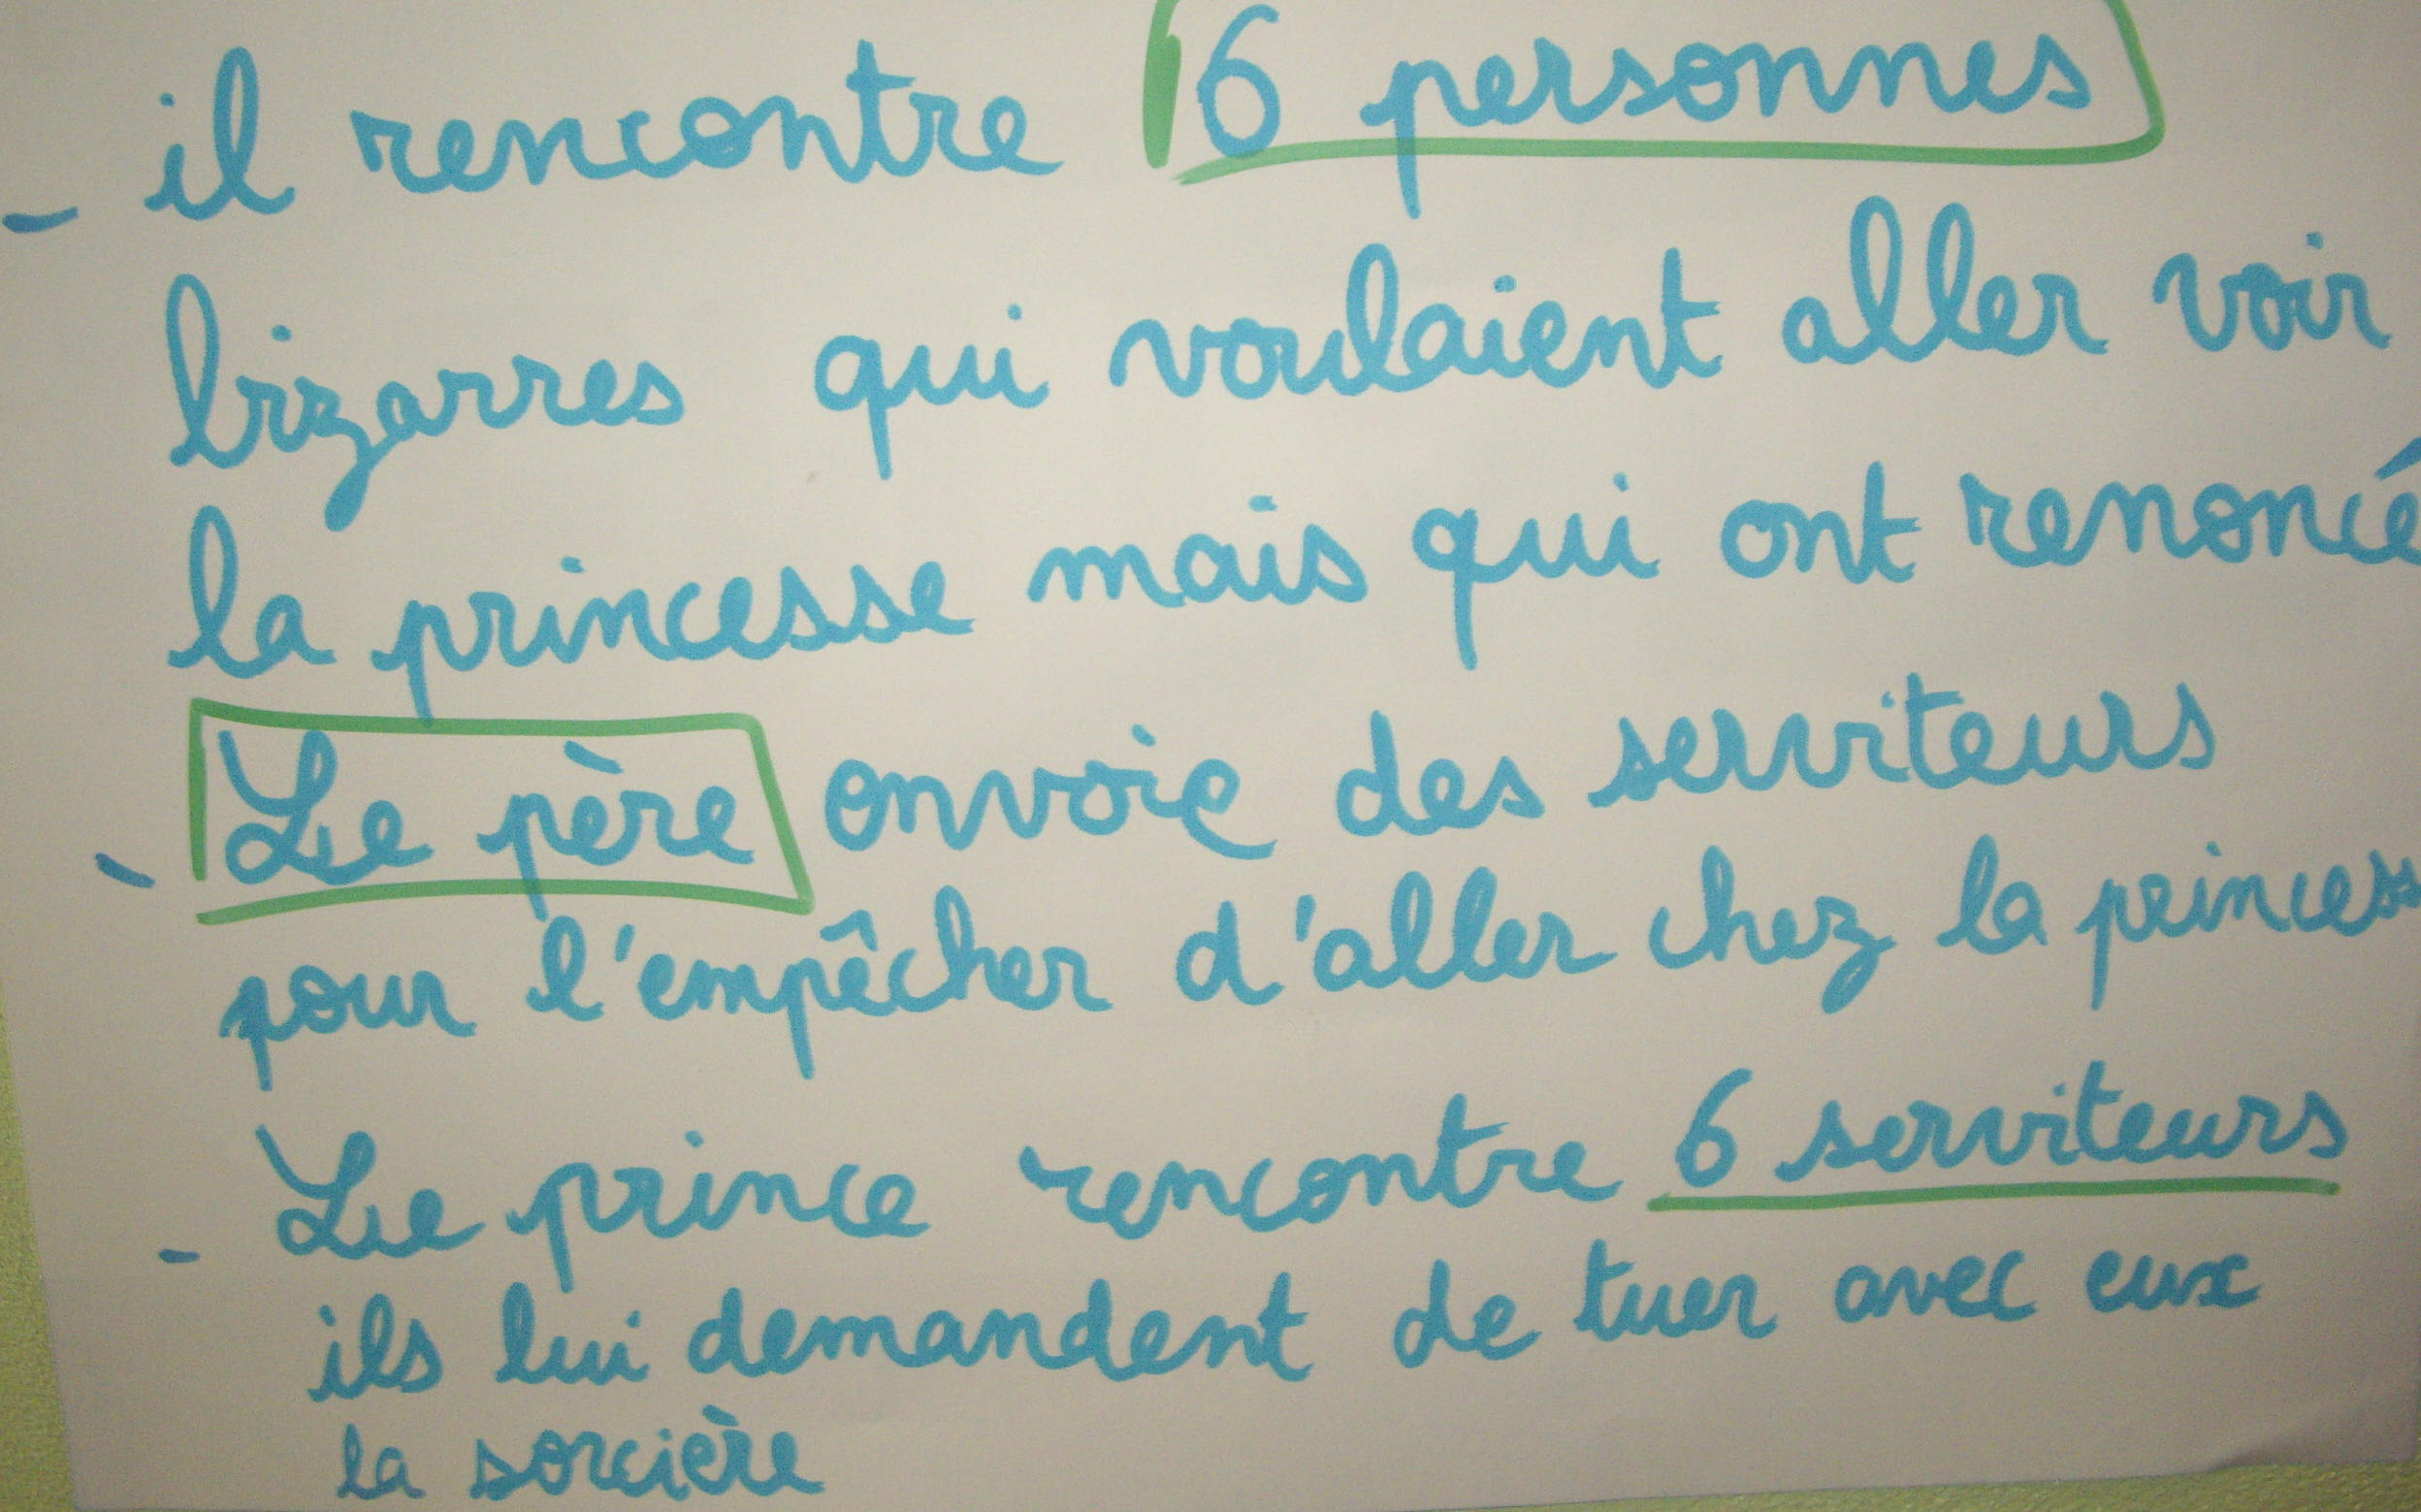 - il rencontre 6 personnes
bizarres qui voulaient aller voir
la princesse mais qui ont renoncé
- Le père envoie des serviteurs
pour l'empêcher d'aller chez la princess
- Le prince rencontre 6 serviteurs
ils lui demandent de tuer avec eux
la sorcière